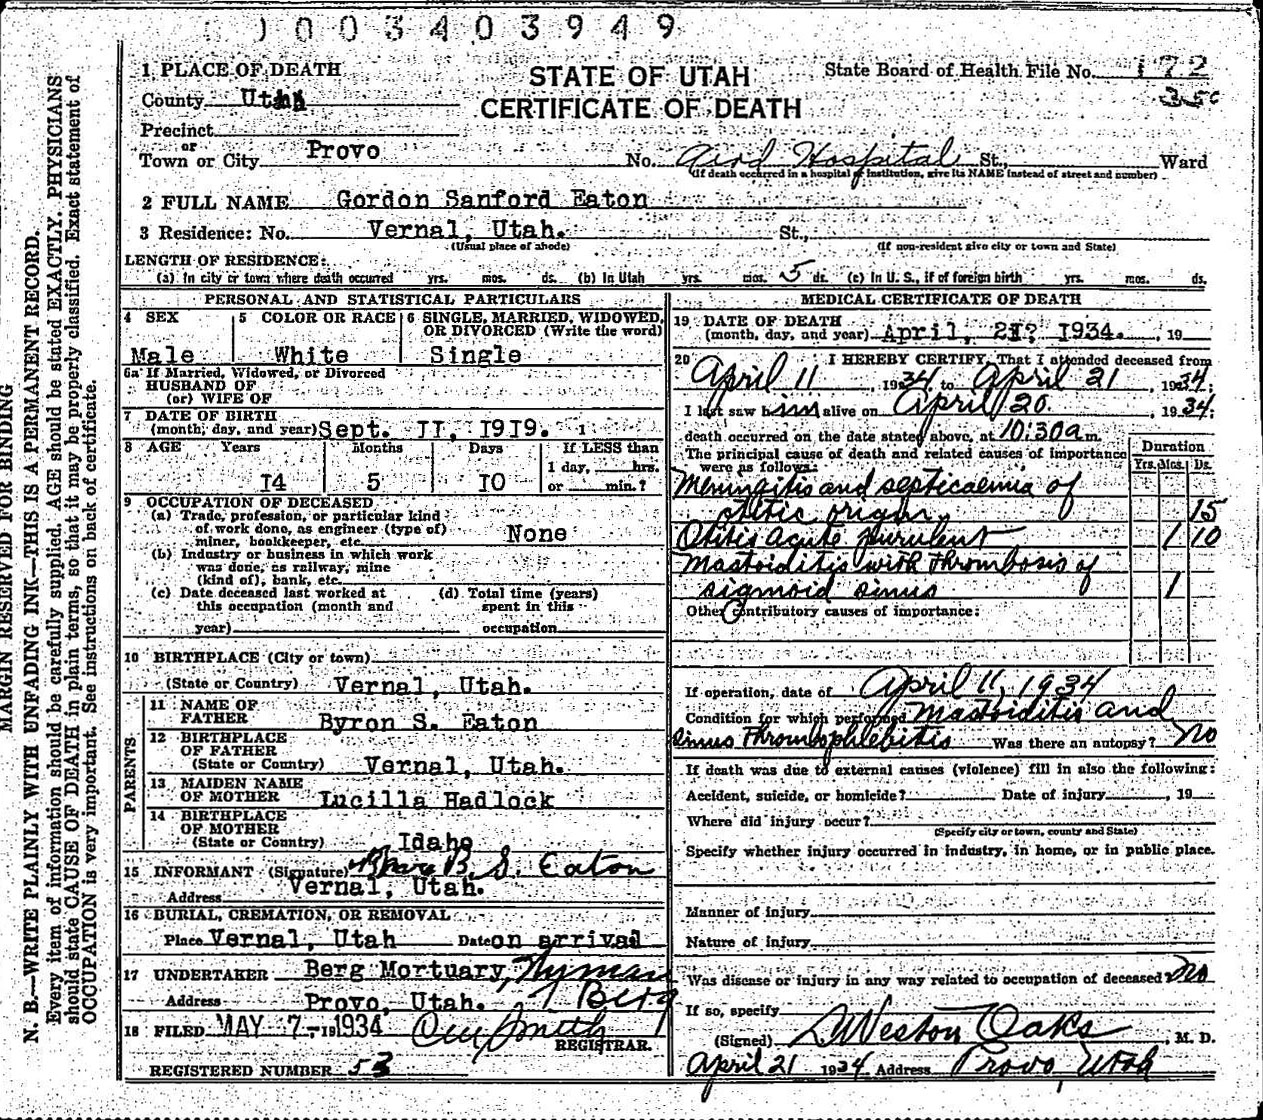 003403949
1 PLACE OF DEATH
STATE OF UTAH
CERTIFICATE OF DEATH
State Board of Health File No. 172
350
County Utah
Precinct
or
Town or City Provo No. Aird Hospital St., Ward
(If death occurred in a hospital or institution, give its NAME instead of street and number)
2 FULL NAME Gordon Sanford Eaton
3 Residence: No. Vernal, Utah. St.,
(Usual place of abode) (If non-resident give city or town and State)
LENGTH OF RESIDENCE:
(a) In city or town where death occurred yrs. mos. ds. (b) In Utah yrs. mos. 5 ds. (c) In U. S., if of foreign birth yrs. mos. ds.
PERSONAL AND STATISTICAL PARTICULARS
4 SEX
Male
5 COLOR OR RACE
White
6 SINGLE, MARRIED, WIDOWED,
OR DIVORCED (Write the word)
Single
6a If Married, Widowed, or Divorced
HUSBAND OF
(or) WIFE OF
7 DATE OF BIRTH
(month, day, and year) Sept. II, I9I9.
8 AGE Years Months Days If LESS than
1 day, hrs.
I4 5 I0 or min.?
9 OCCUPATION OF DECEASED
(a) Trade, profession, or particular kind
of work done, as engineer (type of)
miner, bookkeeper, etc. None
(b) Industry or business in which work
was done, as railway, mine
(kind of), bank, etc.
(c) Date deceased last worked at
this occupation (month and
year)
(d) Total time (years)
spent in this
occupation
10 BIRTHPLACE (City or town)
(State or Country) Vernal, Utah.
PARENTS
11 NAME OF
FATHER Byron S. Eaton
12 BIRTHPLACE
OF FATHER
(State or Country) Vernal, Utah.
13 MAIDEN NAME
OF MOTHER Lucilla Hadlock
14 BIRTHPLACE
OF MOTHER
(State or Country) Idaho
15 INFORMANT (Signature) B. S. Eaton
Address Vernal, Utah.
16 BURIAL, CREMATION, OR REMOVAL
Place Vernal, Utah Date on arrival
17 UNDERTAKER Berg Mortuary, Hyman Berg
Address Provo, Utah.
18 FILED MAY 7-1934 Smith
REGISTRAR.
REGISTERED NUMBER 53
MEDICAL CERTIFICATE OF DEATH
19 DATE OF DEATH
(month, day, and year) April, 21? I934. , 19
20 I HEREBY CERTIFY, That I attended deceased from
April 11, 1934, to April 21, 1934;
I last saw him alive on April 20, 1934;
death occurred on the date stated above, at 10:30 a m.
The principal cause of death and related causes of importance
were as follows:
Duration
Yrs. Mos. Ds.
Meningitis and septicaemia of
otitic origin 15
Otitis acute purulent 1 10
Mastoiditis with thrombosis of
sigmoid sinus 1
Other Contributory causes of importance:
If operation, date of April 11, 1934
Condition for which performed Mastoiditis and
sinus thrombophlebitis Was there an autopsy? No
If death was due to external causes (violence) fill in also the following:
Accident, suicide, or homicide? Date of injury , 19
Where did injury occur?
(Specify city or town, county and State)
Specify whether injury occurred in industry, in home, or in public place.
Manner of injury
Nature of injury
Was disease or injury in any way related to occupation of deceased No
If so, specify
(Signed) Weston Oaks , M. D.
April 21 1934 Address Provo, Utah
MARGIN RESERVED FOR BINDING
N. B.—WRITE PLAINLY WITH UNFADING INK—THIS IS A PERMANENT RECORD.
Every item of information should be carefully supplied. AGE should be stated EXACTLY. PHYSICIANS
should state CAUSE OF DEATH in plain terms, so that it may be properly classified. Exact statement of
OCCUPATION is very important. See instructions on back of certificate.